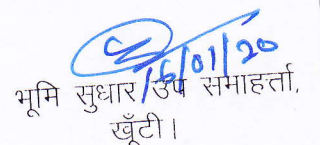 16/01/20
भूमि सुधार उप समाहर्त्ता,
खूँटी।